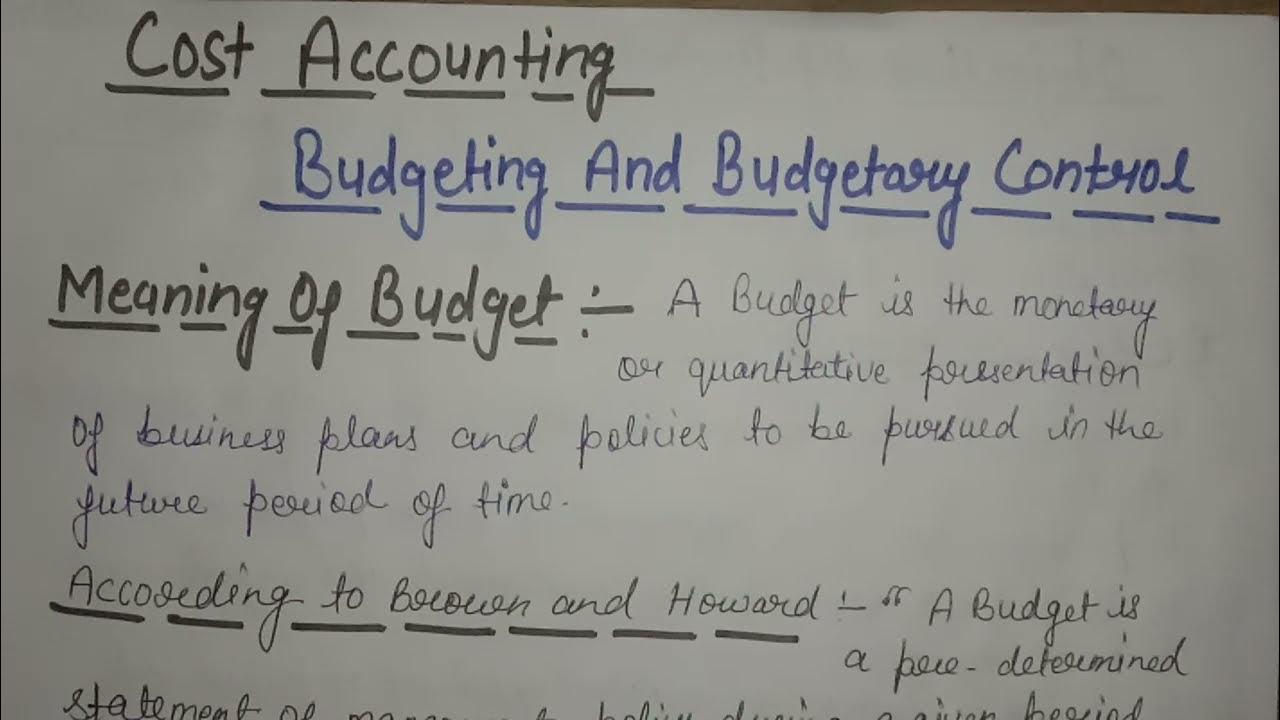 Cost Accounting
Budgeting And Budgetary Control
Meaning Of Budget :- A Budget is the monetary
or quantitative presentation
Of business plans and policies to be pursued in the
future period of time.
According to Brown and Howard :- " A Budget is
a pre-determined
statement of management policy during a given period